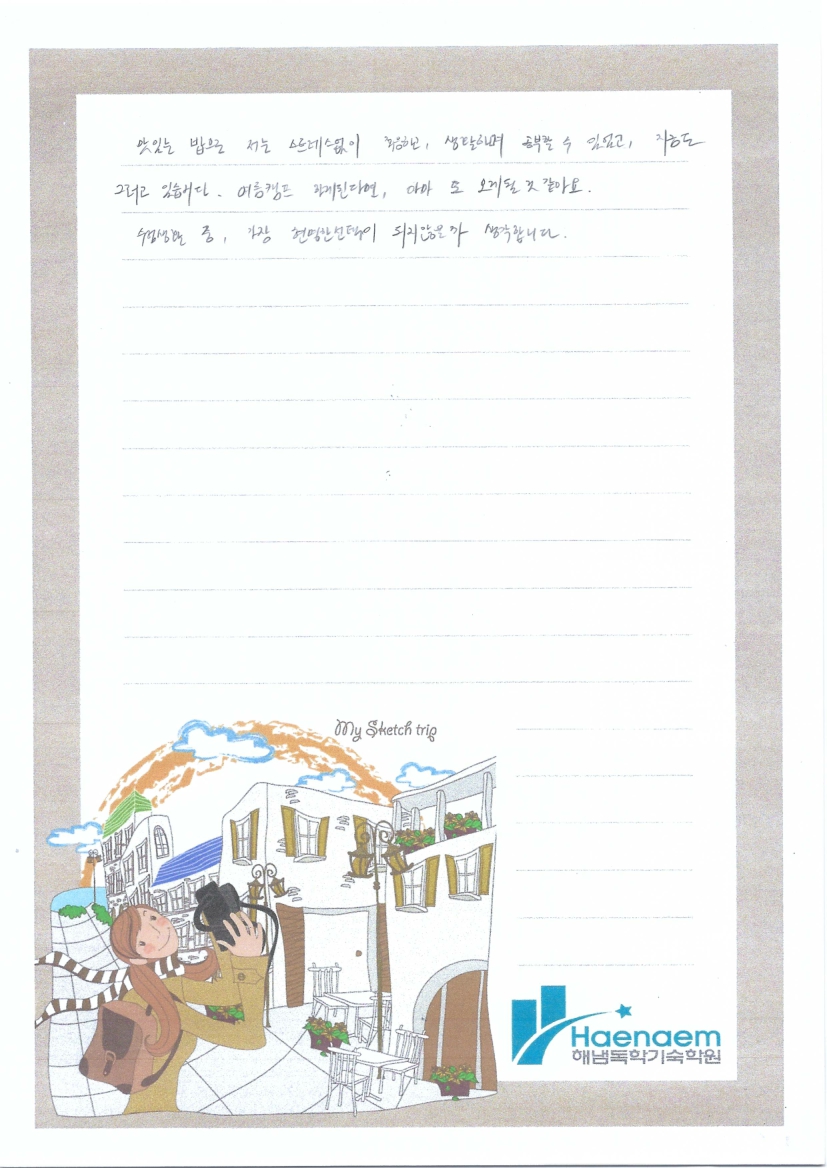 맛있는 밥으로 저는 스트레스없이 회복하고, 생활하며 공부할 수 있었고, 지금도
그러고 있습니다. 여름캠프 하게된다면, 아마 또 오게될 것 같아요.
수험생활 중, 가장 현명한선택이 되지않을까 생각합니다.
My Sketch trip
Haenaem
해냄독학기숙학원